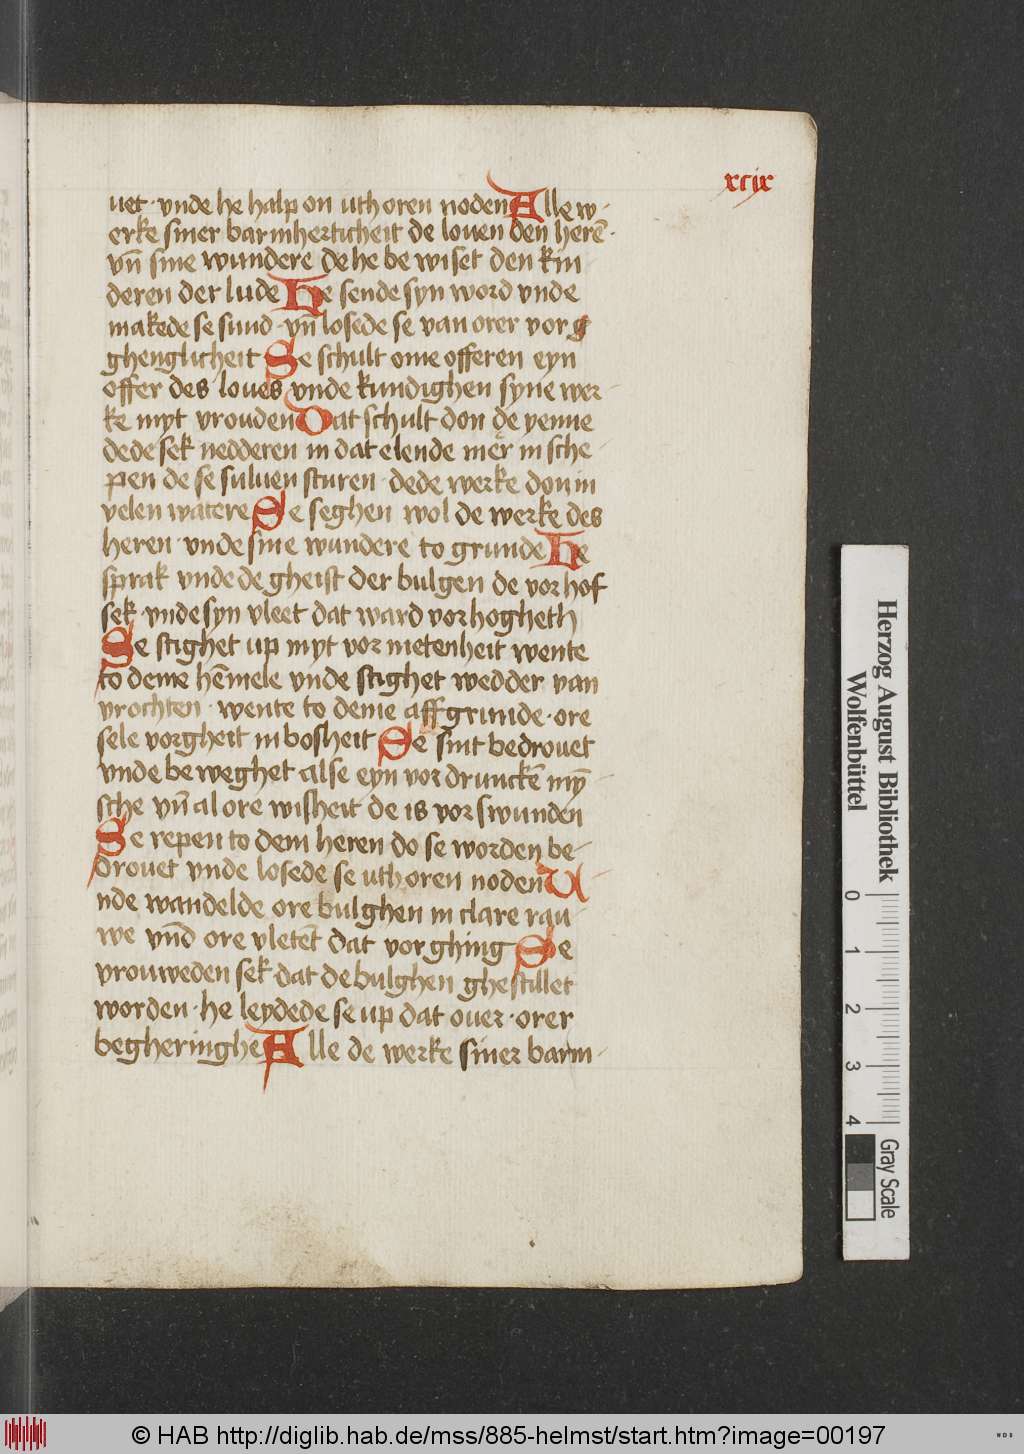 xcix
uet · vnde he halp on uth oren noden Alle w-
erke siner barmherticheit de louen den herē ·
vn̄ sine wundere de he be wiset den kin
deren der lude He sende syn word vnde
makede se sund · vn̄ losede se van orer vorg
ghenglicheit Se schult ome offeren eyn
offer des loues vnde kundighen syne wer-
ke myt vrouden Dat schult don de yenne
dede sek nedderen in dat elende mer in sche-
pen de se suluen sturen · dede werke don in
velen watere Se seghen wol de werke des
heren · vnde sine wundere to grunde He
sprak vnde de gheist der bulgen de vor hof
sek · vnde syn vleet dat ward vor hogheth
Se stighet up myt vor metenheit wente
to deme hēmele vnde stighet wedder van
vrochten · wente to deme affgrunde · ore
sele vorgheit in bosheit Se sint bedrouet
vnde be weghet alse eyn vor drunckē mȳ-
sche vn̄ al ore wisheit de is vor swunden
Se repen to dem heren do se worden be-
drouet vnde losede se uth oren noden U-
nde wandelde ore bulghen in clare rau-
we vn̄d ore vletēt dat vor ghing Se
vrouweden sek dat de bulghen ghestillet
worden · he leydede se up dat ouer · orer
begheringhe Alle de werke siner barm-
Herzog August Bibliothek
Wolfenbüttel
0 1 2 3 4
Gray Scale
© HAB http://diglib.hab.de/mss/885-helmst/start.htm?image=00197